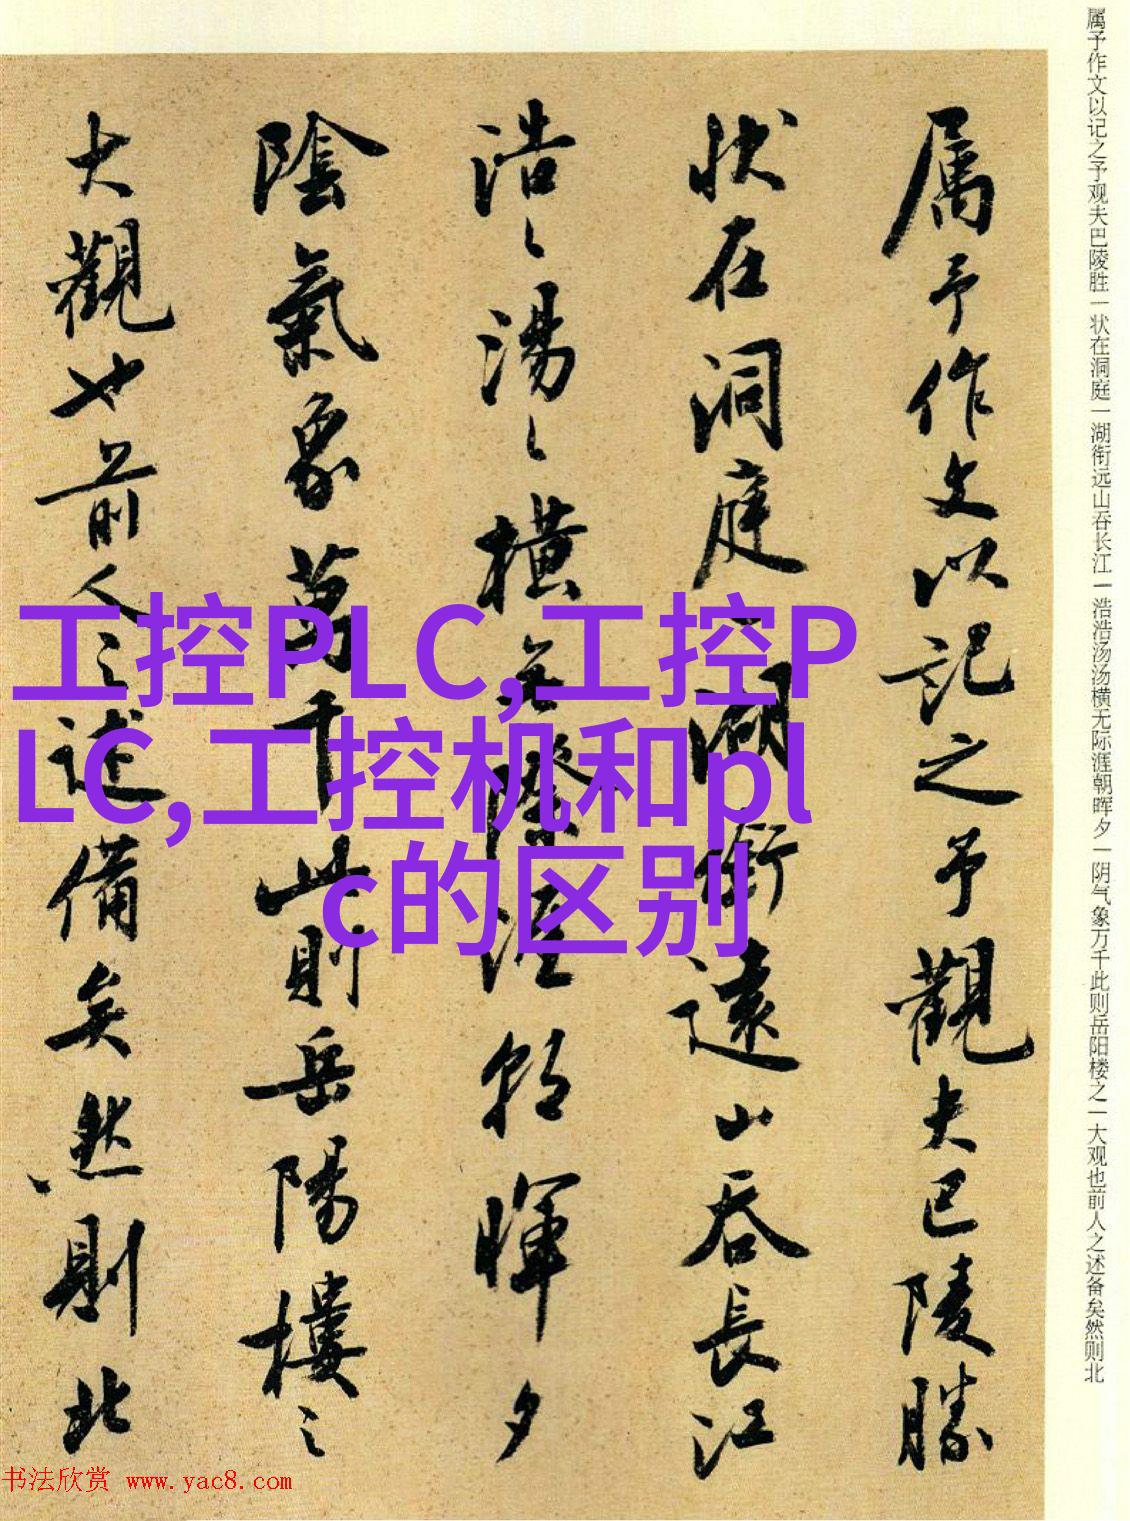 属予作文以记之予观夫巴陵胜一状在洞庭一湖衔远山吞长江一浩浩汤汤横无际涯朝晖夕一阴气象万千此则岳阳楼之一大观也前人之述备矣然则北
属予作文以記之予觀夫巴陵勝
状在洞庭一湖銜遠山吞長江
浩〻湯〻横无際涯朝暉夕
陰氣象萬千此則岳陽樓之
大觀也前人之述備矣然則北
工控PLC,工控P
LC,工控机和pl
c的区别
书法欣赏 www.yac8.com